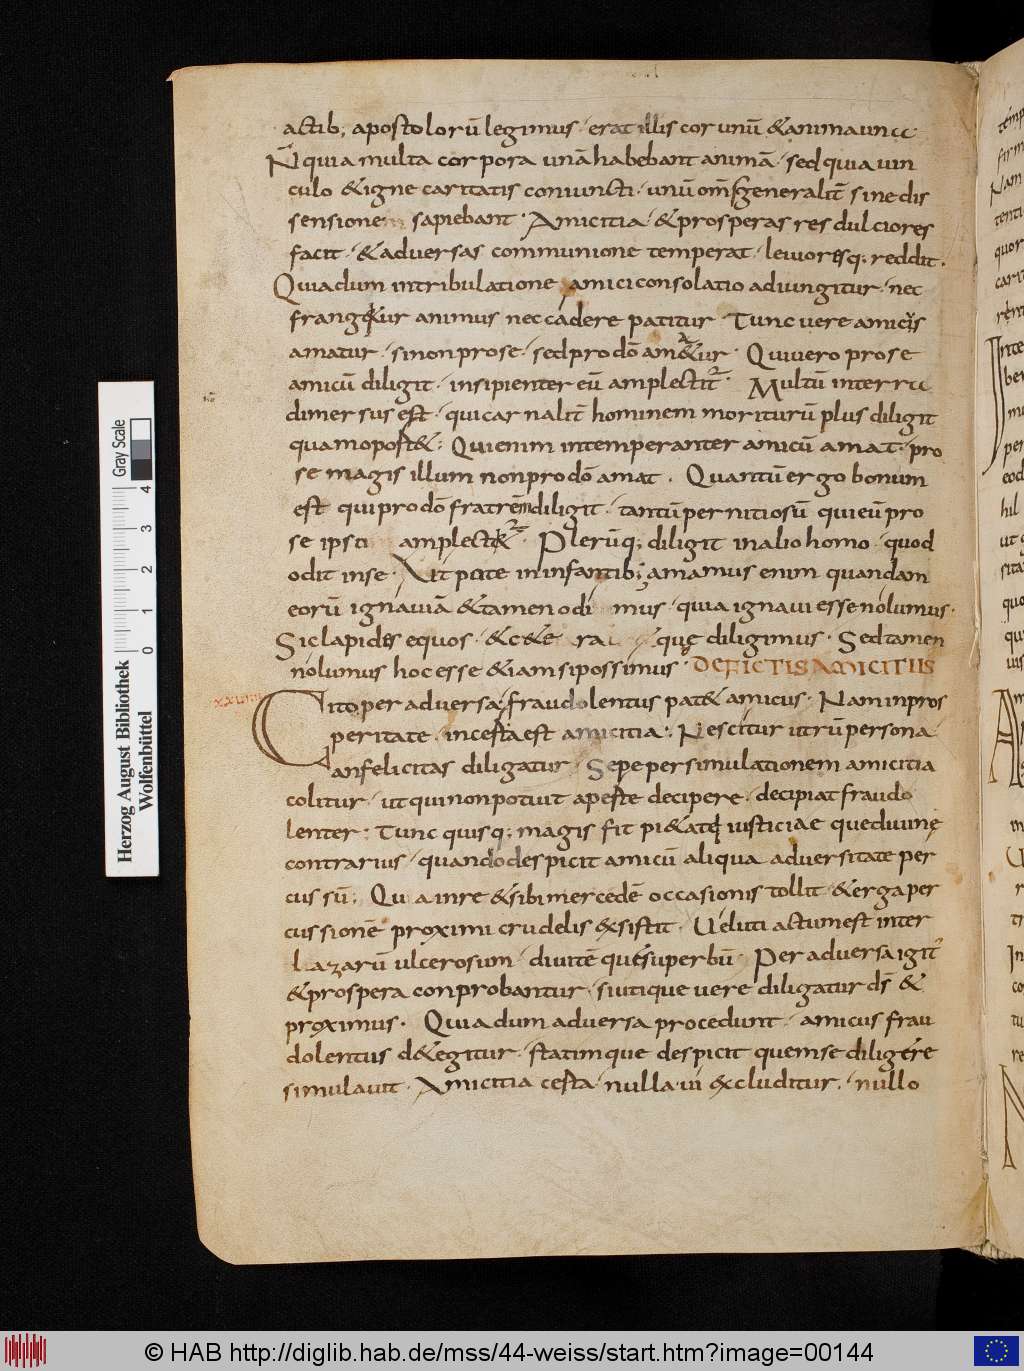 actib; apostolorū legimus · erat illis cor unū & anima una
N̄ quia multa corpora unā habebant animā · sed quia uin
culo & igne caritatis coniuncti · unū oms̄ generalit̄ sine dis
sensione sapiebant · Amicitia · & prosperas res dulciores
facit · & aduersas communione temperat · leuioresq; reddit .
Quia dum in tribulatione amici consolatio adiungitur · nec
frangitur animus nec cadere patitur Tunc uere amicus
amatur · si non pro se · sed pro dō am&ur · Qui uero pro se
amicū diligit · insipienter eū amplectit᷑ · Multū in terra
dimersus est · qui carnalit̄ hominem moriturū plus diligit
quam oport& : Qui enim intemperanter amicū amat · pro
se magis illum non pro dō amat . Quantū ergo bonum
est qui pro dō fratrem diligit · tantū pernitiosū qui eū pro
se ipso amplectit᷑ · Plerūq; diligit in alio homo quod
odit in se · Ut pote in infantib; amamus enim quandam
eorū ignauiā & tamen odimus · quia ignaui esse nolumus ·
Sic lapides equos · & c&era quę diligimus · Sed tamen
nolumus hoc esse & iam si possimus · DE FICTIS AMICITIIS
Cito per aduersa fraudolentus pat& amicus · Nam in pros
peritate · incesta est amicitia · Nescitur utrū persona
an felicitas diligatur · Sepe per simulationem amicitia
colitur · ut qui non potuit aperte decipere · decipiat fraudo
lenter : Tunc quisq; magis fit pi&ate iusticiae que diuinę
contrarius · quando despicit amicū aliqua aduersitate per
cussū; Qua in re & sibi mercedē occasionis tollit · & erga per
cussionē proximi crudelis exsistit · Ueluti actum est inter
Lazarū ulcerosum · diuitē quesuperbū · Per aduersa igit᷑
& prospera conprobantur · si utique uere diligatur dś &
proximus · Quia dum aduersa procedunt · amicus frau
dolentus d&egitur · statimque despicit quem se diligere
simulauit · Amicitia cesta · nulla ui excluditur · nullo
Gray Scale
0 1 2 3 4
Herzog August Bibliothek
Wolfenbüttel
© HAB http://diglib.hab.de/mss/44-weiss/start.htm?image=00144